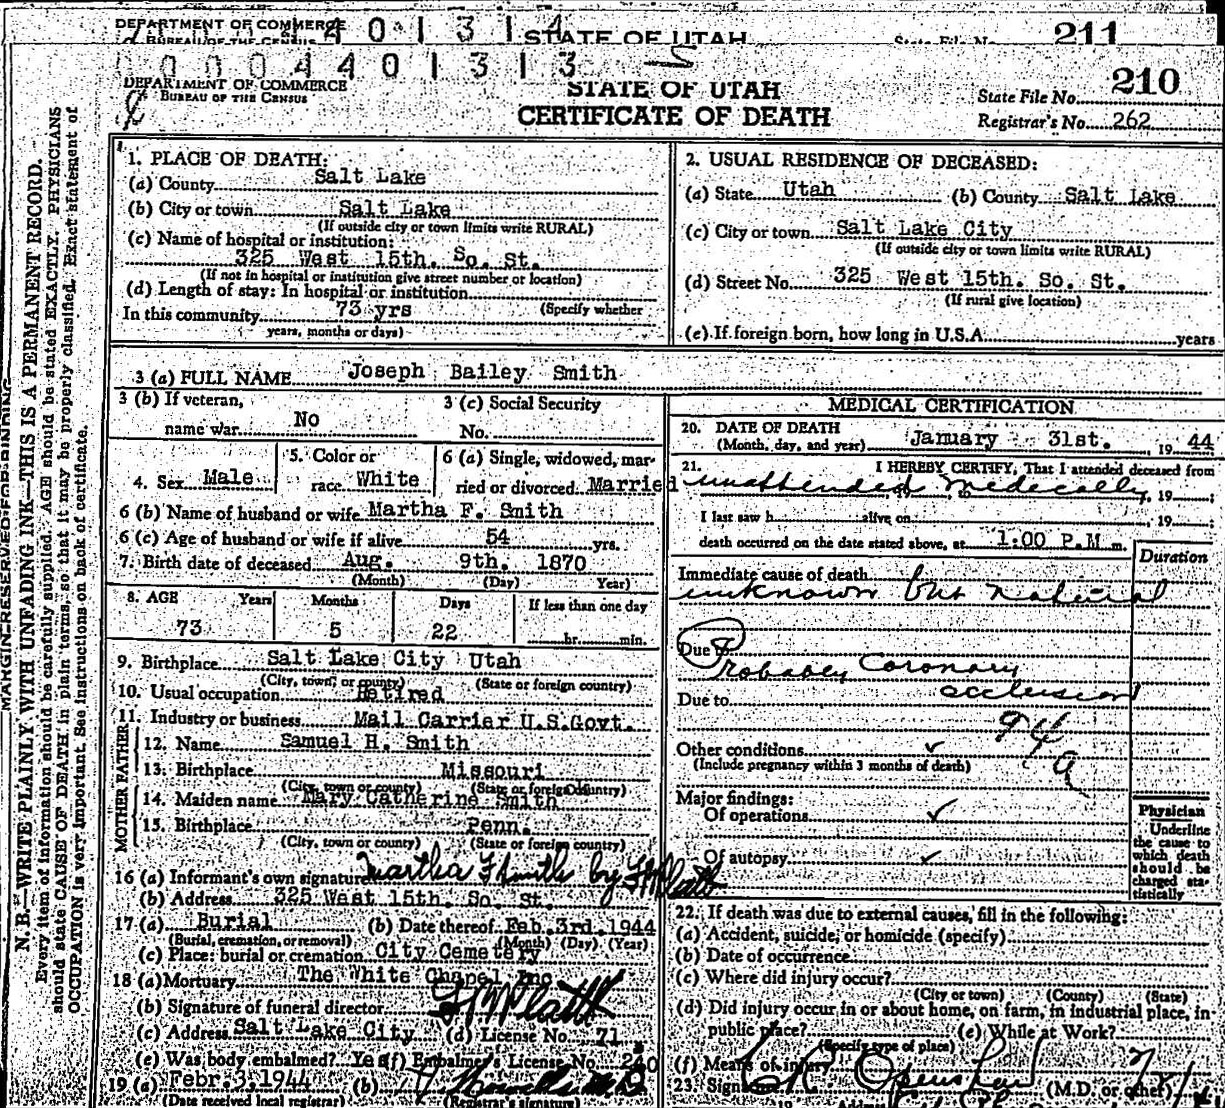 DEPARTMENT OF COMMERCE 4 0 1 3 1 4 STATE OF UTAH State File No. 211
BUREAU OF THE CENSUS
0 0 0 4 4 0 1 3 1 3
DEPARTMENT OF COMMERCE
BUREAU OF THE CENSUS
STATE OF UTAH
CERTIFICATE OF DEATH
State File No. 210
Registrar's No. 262
MARGIN RESERVED FOR BINDING
N. B.—WRITE PLAINLY WITH UNFADING INK—THIS IS A PERMANENT RECORD.
Every item of information should be carefully supplied. AGE should be stated EXACTLY. PHYSICIANS
should state CAUSE OF DEATH in plain terms, so that it may be properly classified. Exact statement of
OCCUPATION is very important. See instructions on back of certificate.
1. PLACE OF DEATH:
(a) County Salt Lake
(b) City or town Salt Lake
(If outside city or town limits write RURAL)
(c) Name of hospital or institution:
325 West 15th. So. St.
(If not in hospital or institution give street number or location)
(d) Length of stay: In hospital or institution
In this community 73 yrs (Specify whether
years, months or days)
2. USUAL RESIDENCE OF DECEASED:
(a) State Utah (b) County Salt Lake
(c) City or town Salt Lake City
(If outside city or town limits write RURAL)
(d) Street No. 325 West 15th. So. St.
(If rural give location)
(e) If foreign born, how long in U.S.A. years
3 (a) FULL NAME Joseph Bailey Smith
3 (b) If veteran,
name war No
3 (c) Social Security
No.
4. Sex Male
5. Color or
race White
6 (a) Single, widowed, mar-
ried or divorced Married
6 (b) Name of husband or wife Martha F. Smith
6 (c) Age of husband or wife if alive 54 yrs.
7. Birth date of deceased Aug. 9th. 1870
(Month) (Day) Year)
8. AGE Years Months Days If less than one day
73 5 22 hr. min.
9. Birthplace Salt Lake City Utah
(City, town, or county) (State or foreign country)
10. Usual occupation Retired
11. Industry or business Mail Carrier U.S.Govt.
FATHER
12. Name Samuel H. Smith
13. Birthplace Missouri
(City, town or county) (State or foreign country)
MOTHER
14. Maiden name Mary Catherine Smith
15. Birthplace Penn.
(City, town or county) (State or foreign country)
16 (a) Informant's own signature Martha F Smith by F W Platt
(b) Address 325 West 15th. So. St.
17 (a) Burial (b) Date thereof Feb.3rd.1944
(Burial, cremation, or removal) (Month) (Day) (Year)
(c) Place: burial or cremation City Cemetery
18 (a) Mortuary The White Chapel Inc
(b) Signature of funeral director Platt
(c) Address Salt Lake City (d) License No. 71
(e) Was body embalmed? Yes (f) Embalmer's License No. 240
19 (a) Febr.3.1944 (b) M.D.
(Date received local registrar) (Registrar's signature)
MEDICAL CERTIFICATION
20. DATE OF DEATH
(Month, day, and year) January 31st. 19 44
21. I HEREBY CERTIFY, That I attended deceased from
unattended medecally, 19
I last saw h alive on , 19
death occurred on the date stated above, at 1:00 P.M m.
Duration
Immediate cause of death
unknown but natural
Due to
Probably coronary
occlusion
Due to
94
a
Other conditions ✓
(Include pregnancy within 3 months of death)
Major findings:
Of operations ✓
Of autopsy ✓
Physician
Underline
the cause to
which death
should be
charged sta-
tistically
22. If death was due to external causes, fill in the following:
(a) Accident, suicide, or homicide (specify)
(b) Date of occurrence
(c) Where did injury occur?
(City or town) (County) (State)
(d) Did injury occur in or about home, on farm, in industrial place, in
public place? (e) While at Work?
(Specify type of place)
(f) Means of injury
23. Signature Openshaw (M.D. or other)